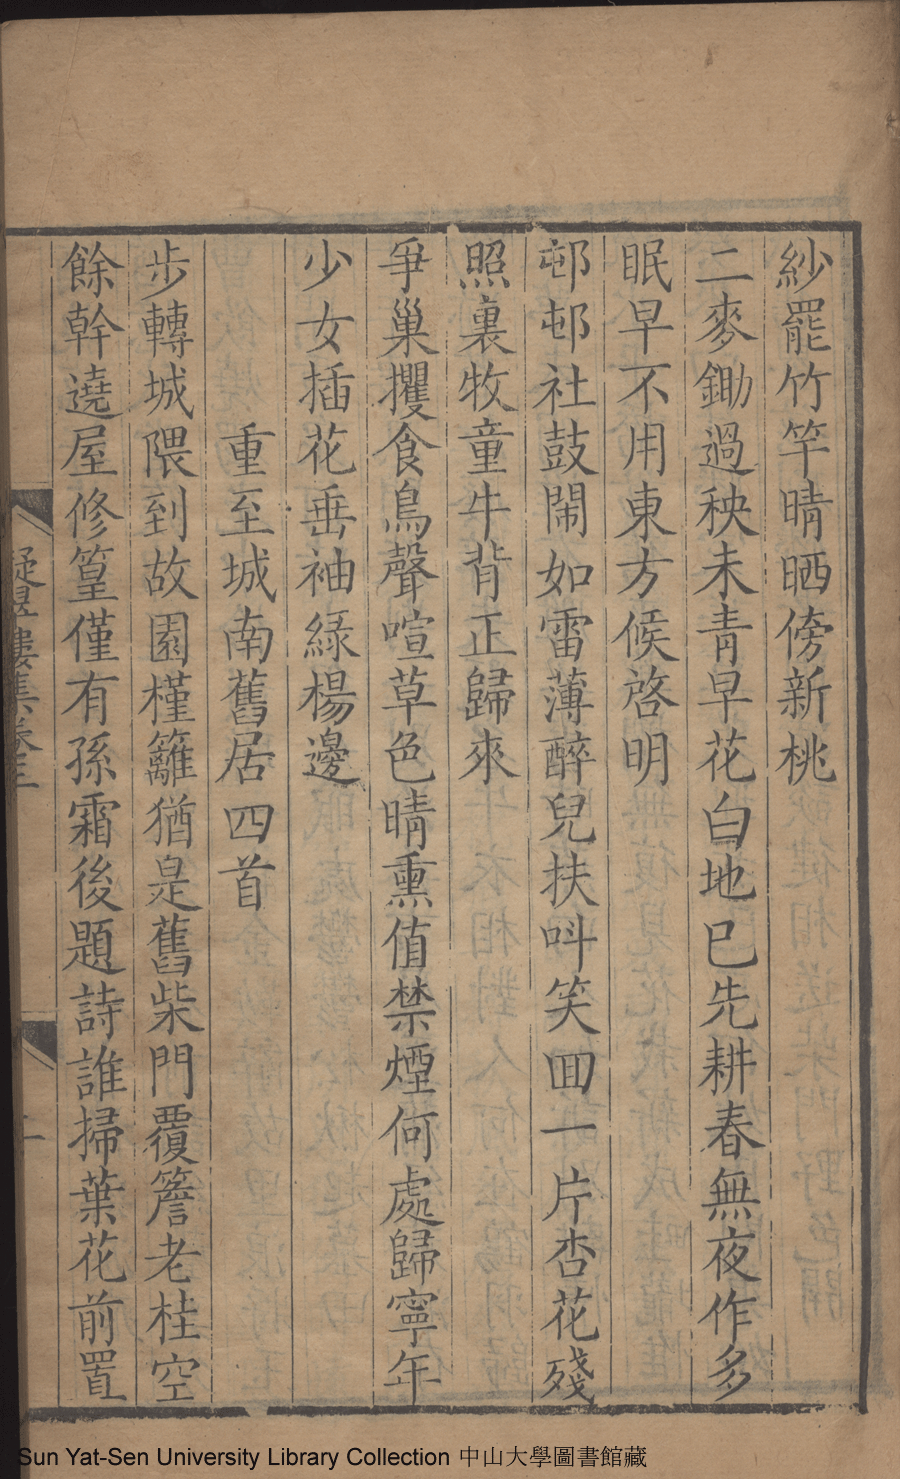 紗罷竹竿晴晒傍新桃
二麥鋤過秧未青早花白地已先耕春無夜作多
眠早不用東方候啓明
邨邨社鼓鬧如雷薄醉兒扶呌笑囬一片杏花殘
照裏牧童牛背正歸來
爭巢攫食鳥聲喧草色晴熏值禁煙何處歸寧年
少女插花垂袖綠楊邊
重至城南舊居四首
步轉城隈到故園槿籬猶是舊柴門覆簷老桂空
餘幹遶屋修篁僅有孫霜後題詩誰掃葉花前置
樓集卷三
Sun Yat-Sen University Library Collection 中山大學圖書館藏